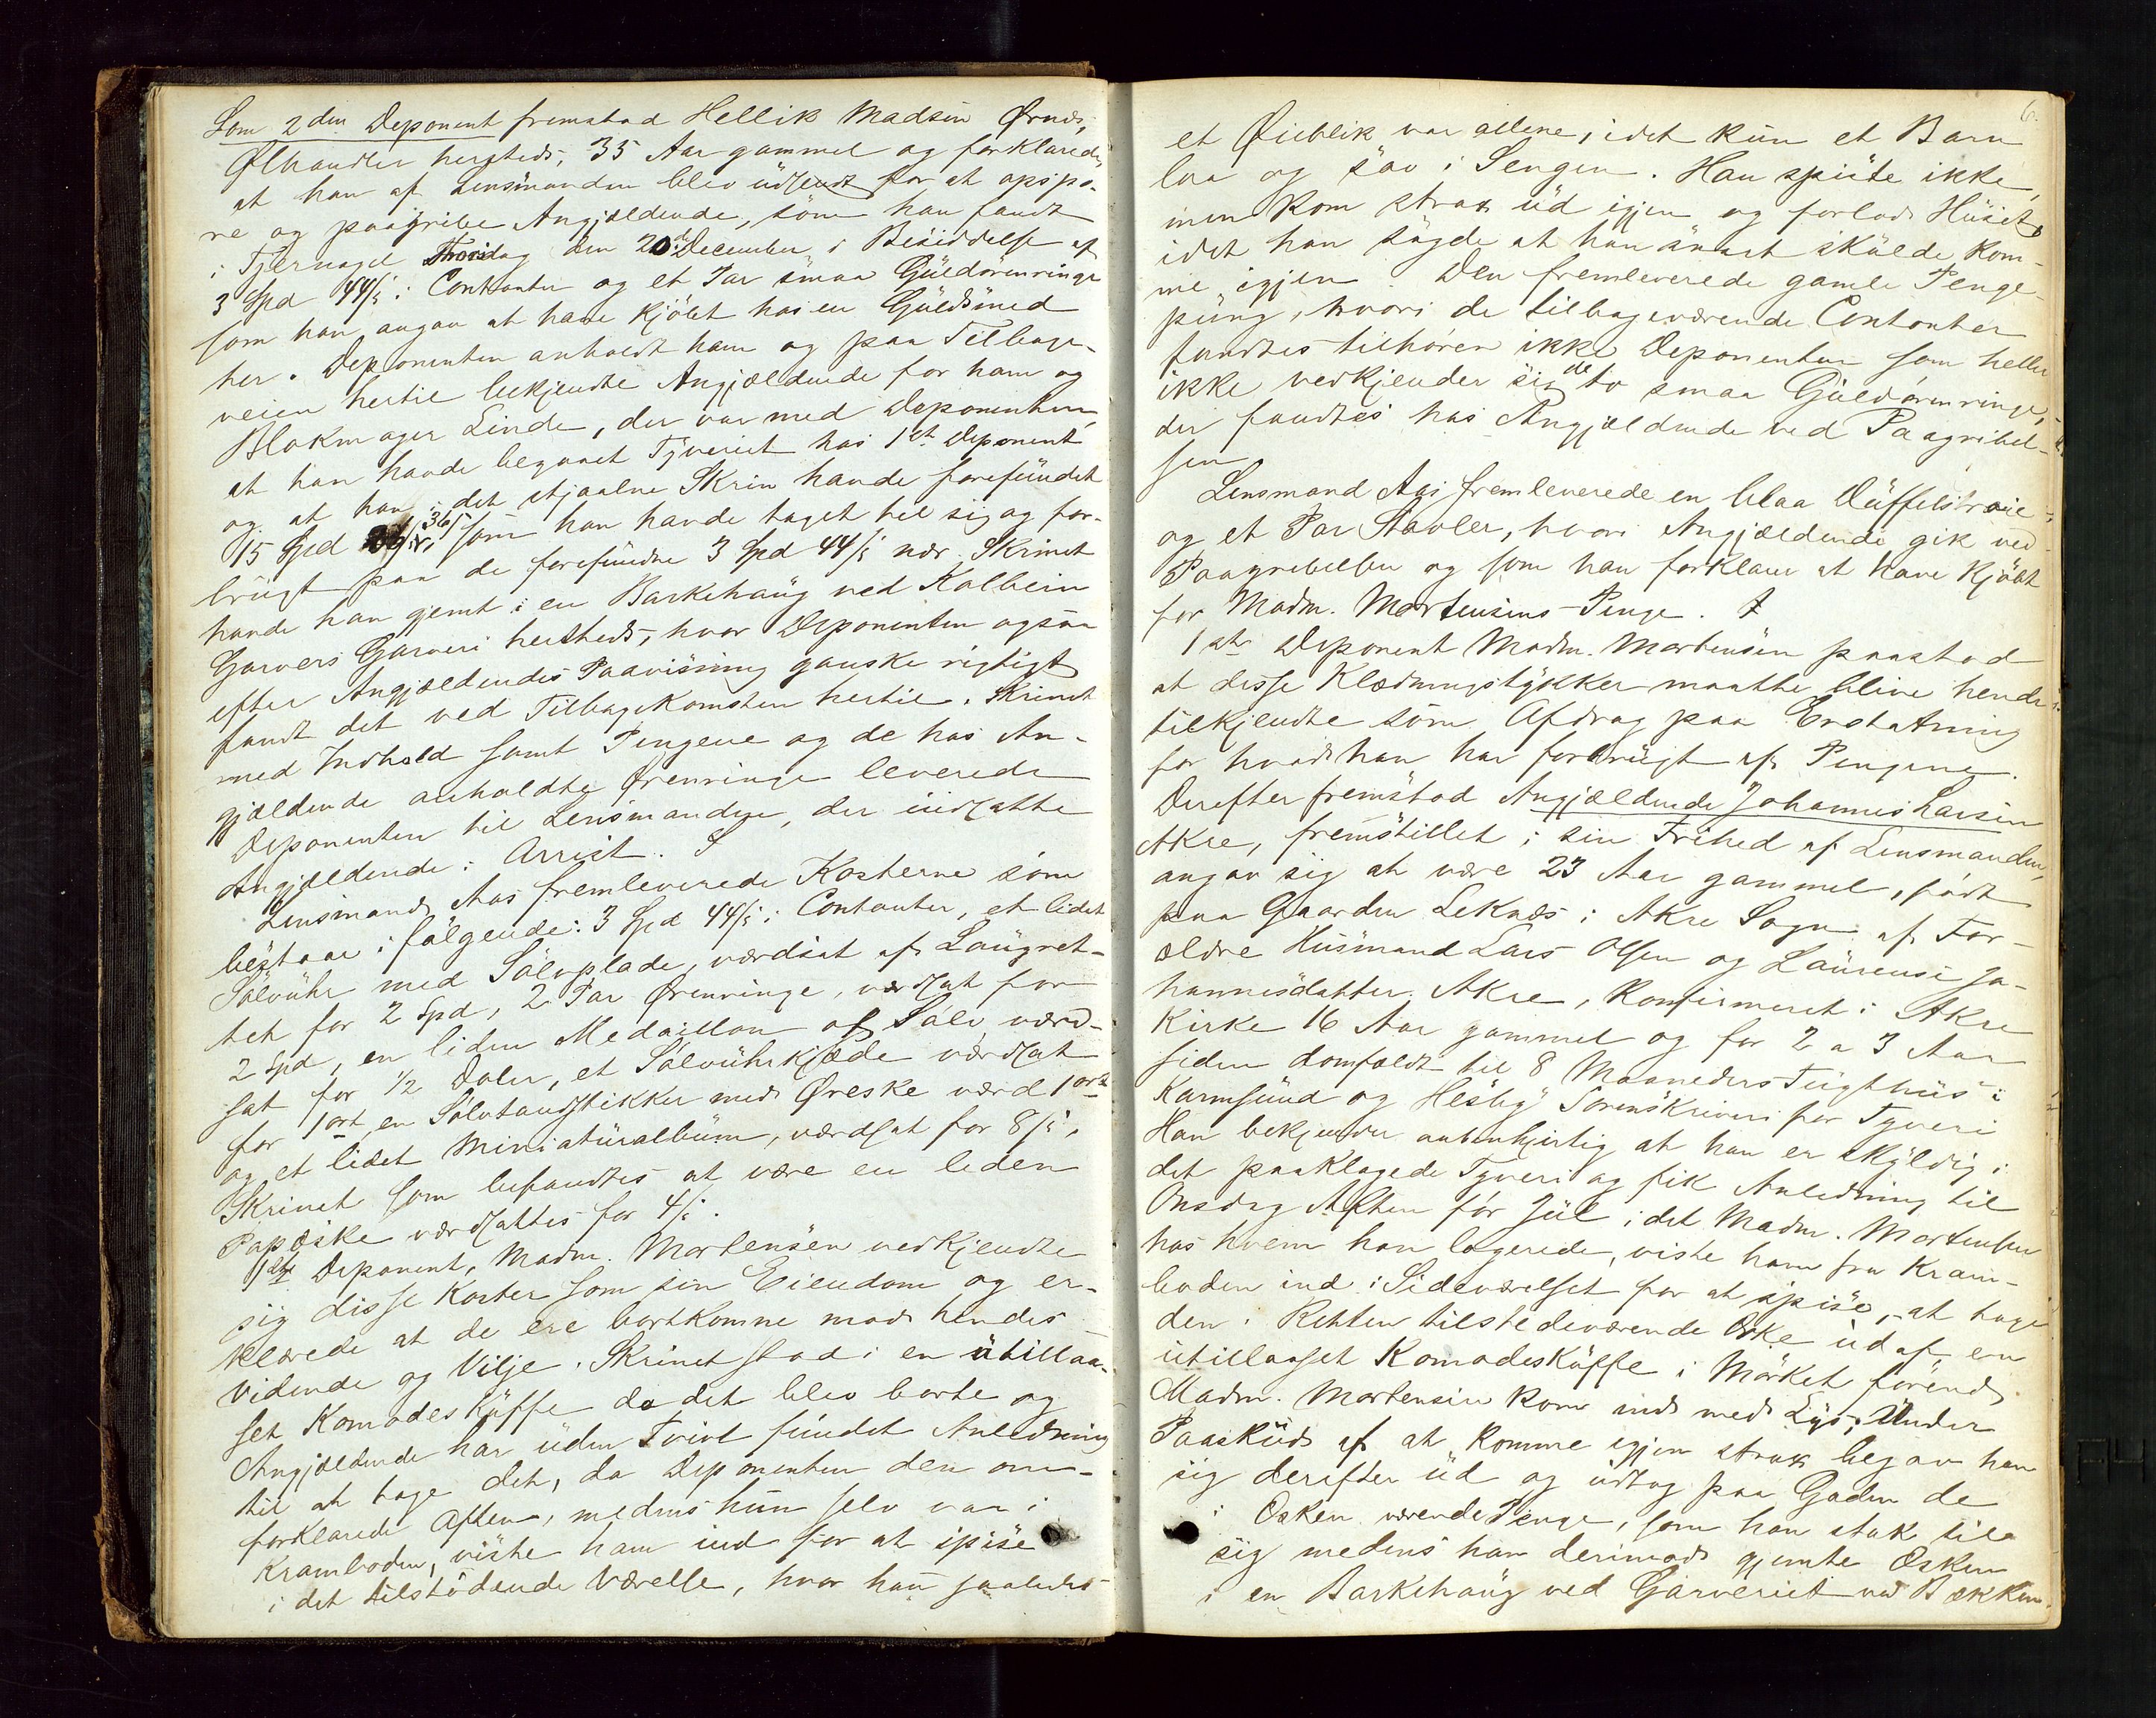 Som 2den Deponent fremstod Hellik Madsen Ørnes,
Ølhandler hersteds, 35 Aar gammel og forklarede,
at han af Lensmanden blev üdsendt for at opspo-
re og paagribe Angjældende, som han fandt
i Tjernagel Thorsdag den 20de December i Besiddelse af
3 Spd 44 ß i Contanter og et Par smaa Güldørenringe
som han angav at have kjöbt hos en Güldsmed
her. Deponenten anholdt ham og paa Tilbage-
veien hertil bekjendte Angjældende for ham og
Blokmager Linde, der var med Deponenten,
at han havde begaaet Tyveriet hos 1ste Deponent
og at han i det stjaalne Skrin havde forefündet
15 Spd 36 ß som han havde taget til sig og for-
brügt paa de forefündne 3 Spd 44 ß nær. Skrinet
havde han gjemt i en Barkehaüg ved Kolbein
Garvers Garveri hersteds, hvor Deponenten ogsaa
efter Angjældendes Paavisning ganske rigtigt
fandt det ved Tilbagekomsten hertil. Skrinet
med Indhold samt Pengene og de hos An-
gjældende anholdte Ørenringe leverede
Deponenten til Lensmanden, der indsatte
Angjældende i Arrest.
Lensmand Aas fremleverede Kosterne som
bestaar i følgende: 3 Spd 44 ß i Contanter, et lidet
Sölvühr med Sölvplade, værdsat af Laügret-
tet for 2 Spd, 2 Par Ørenringe, værdsat for
2 Spd, en liden Medaillon af Sölv værd-
sat for 1/2 Daler, et Sölvührkjæde værdsat
for 1 ort, en Sölvtandstikker med Øreske værd 1 ort
og et lidet Miniatüralbüm, værdsat for 8 ß,
Skrinet som befandtes at være en liden
Papæske værdsattes for 4 ß.
1ste Deponent, Madm. Mortensen vedkjendte
sig disse Koster som sin Eiendom og er-
klærede at de ere bortkomne mod hendes
Vidende og Vilje. Skrinet stod i en ütillaa-
set Komodesküffe da det blev borte og
Angjældende har üden Tvivl fündet Anledning
til at tage det, da Deponenten den om-
forklarede Aften, medens hün selv var i
Kramboden, viste ham ind for at spise
i det tilstödende Værelse, hvor han saaledes
6.
et Øieblik var allene, idet kün et Barn
laa og sov i Sengen. Han spiste ikke,
men kom strax üd igjen og forlod Hüset,
idet han sagde at han snart skülde kom-
me igjen. Den fremleverede gamle Penge-
püng, hvori de tilbageværende Contanter
fandtes tilhører ikke Deponenten som heller
ikke vedkjender sig de to smaa Güldørenringe,
der fandtes hos Angjældende ved Paagribel-
sen.
Lensmand Aas fremleverede en blaa Düffelstrøie
og et Par Støvler, hvori Angjældende gik ved
Paagribelsen og som han forklarer at have kjöbt
for Madm. Mortensens Penge.
1ste Deponent Madm. Mortensen paastod
at disse Klædningstykker maatte blive hende
tilkjendte som Afdrag paa Erstatning
for hvad han har forbrügt af Pengene.
Derefter fremstod Angjældende Johannes Larsen
Akre, fremstillet i sin Frihed af Lensmanden,
angav sig at være 23 Aar gammel, født
paa Gaarden Leknes i Akre Sogn af For-
ældre Hüsmand Lars Olsen og Laürense Jo-
hannesdatter Akre, Konfirmeret i Akre
Kirke 16 Aar gammel og for 2 a 3 Aar
siden domfældt til 8 Maaneders Tügthüs i
Karmsünd og Hesby Sorenskriveri for Tyveri
Han bekjender aabenhjertig at han er skyldig i
det paaklagede Tyveri og fik Anledning til
Onsdag Aften før Jül, idet Madm. Mortensen
hos hvem han logerede, viste ham fra Kram-
boden ind i Sideværelset for at spise, at tage
den i Retten tilstedeværende Æske üd af en
ütillaaset Komodesküffe i Mörket förend
Madm. Mortensen kom ind med Lys; Under
Paasküd af at komme igjen strax begav han
sig derefter üd og udtog paa Gaden de
i Æsken værende Penge, som han stak til
sig medens han derimod gjemte Æsken
i en Barkehaüg ved Garveriet ved Bækken.